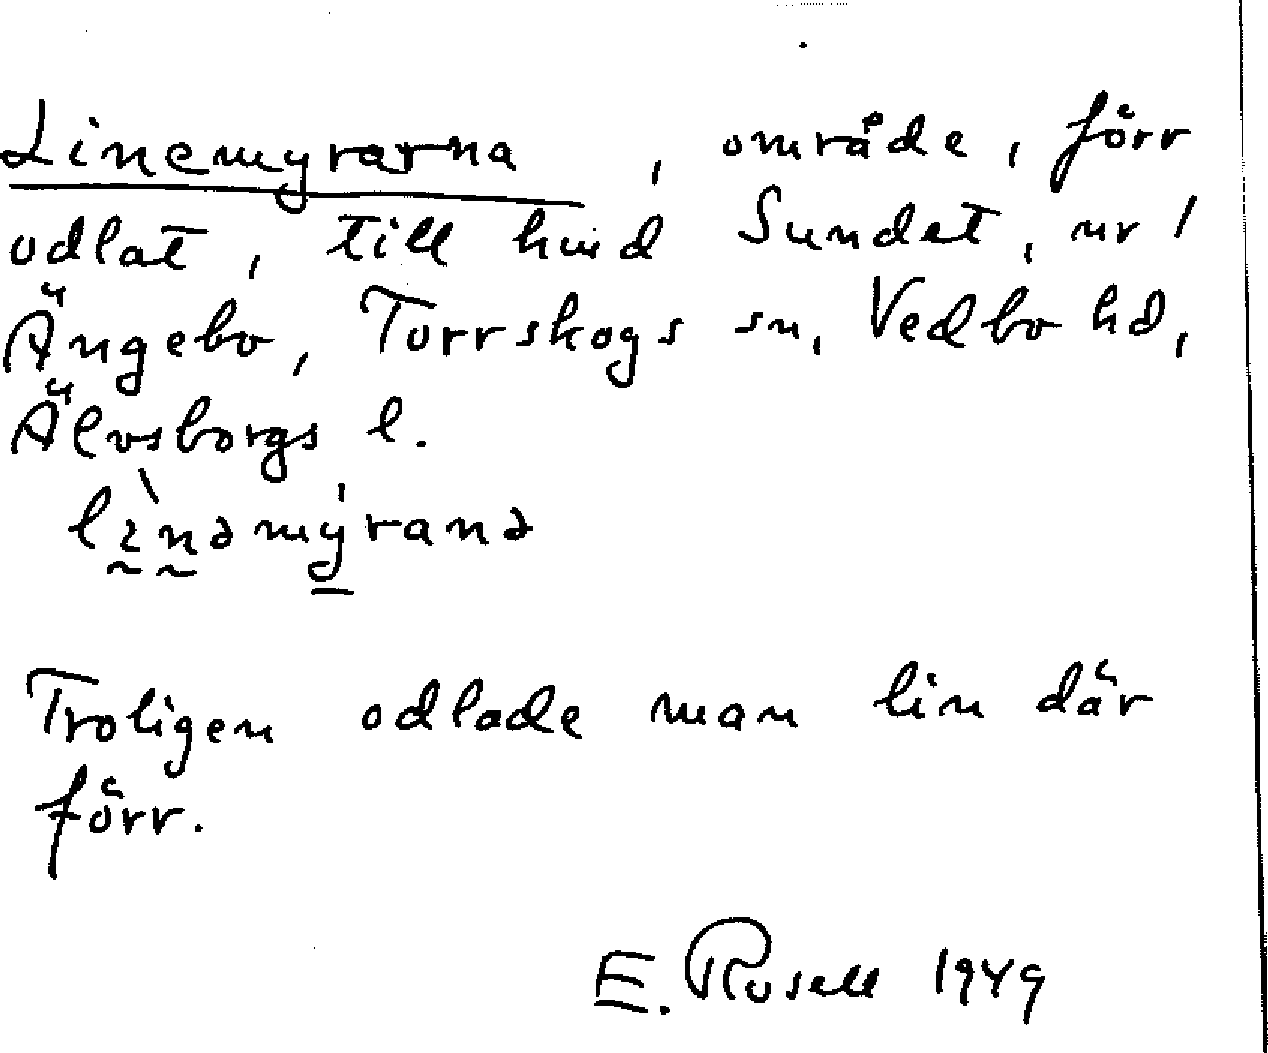 Linemyrarna, område, förr
odlat, till hmd Sundet, nr 1
Ängebo, Torrskogs sn, Vedbo hd,
Älvsborgs l.
Troligen odlade man lin där
förr.
E. Rosell 1949